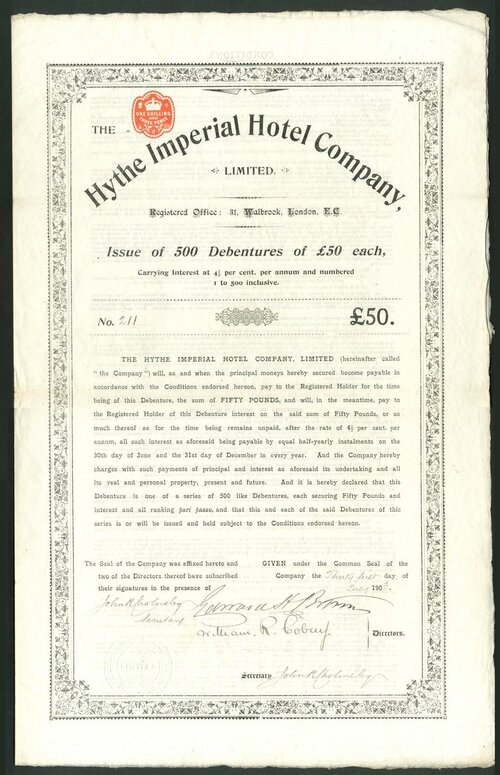 CONDITIONS
ONE SHILLING
AND
THREE PENCE
THE
Hythe Imperial Hotel Company,
LIMITED.
Registered Office: 31, Walbrook, London, E.C.
Issue of 500 Debentures of £50 each,
Carrying Interest at 4½ per cent. per annum and numbered
1 to 500 inclusive.
No. 211
£50.
THE HYTHE IMPERIAL HOTEL COMPANY, LIMITED (hereinafter called
"the Company") will, as and when the principal moneys hereby secured become payable in
accordance with the Conditions endorsed hereon, pay to the Registered Holder for the time
being of this Debenture, the sum of FIFTY POUNDS, and will, in the meantime, pay to
the Registered Holder of this Debenture interest on the said sum of Fifty Pounds, or so
much thereof as for the time being remains unpaid, after the rate of 4½ per cent. per
annum, all such interest as aforesaid being payable by equal half-yearly instalments on the
30th day of June and the 31st day of December in every year. And the Company hereby
charges with such payments of principal and interest as aforesaid its undertaking and all
its real and personal property, present and future. And it is hereby declared that this
Debenture is one of a series of 500 like Debentures, each securing Fifty Pounds and
interest and all ranking pari passu, and that this and each of the said Debentures of this
series is or will be issued and held subject to the Conditions endorsed hereon.
The Seal of the Company was affixed hereto and
two of the Directors thereof have subscribed
their signatures in the presence of
GIVEN under the Common Seal of the
Company the Thirty first day of
July 190
John R Cholmeley
Secretary
William. R. Cobay
Directors.
Secretary John R Cholmeley